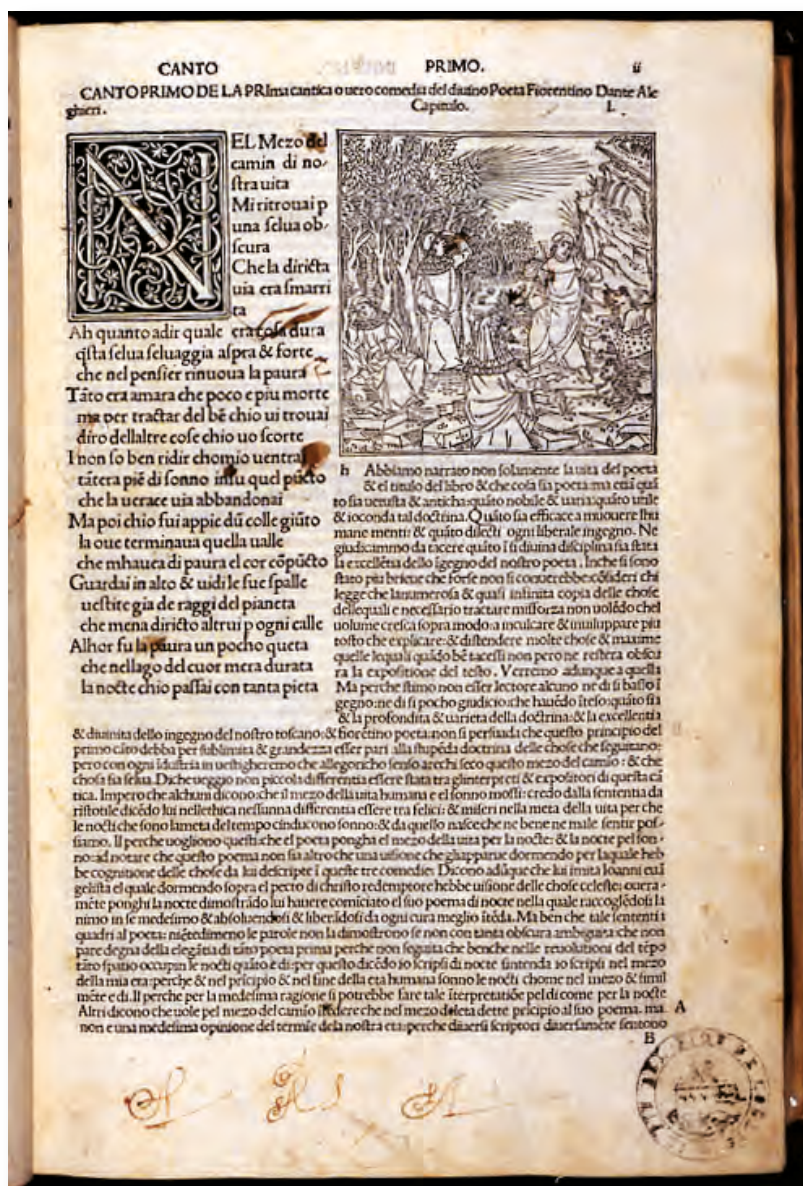 CANTO PRIMO. ii
CANTO PRIMO DE LA PRIma cantica o uero comedia del diuino Poeta Fiorentino Dante Ale
ghieri. Capitulo. I.
N
EL Mezo del
camin di no-
stra uita
Mi ritrouai p
una selua ob-
scura
Che la diricta
uia era smarri
ta
Ah quanto adir quale era cosa dura
q̃sta selua seluaggia aspra & forte
che nel pensier rinuoua la paura
Tãto era amara che poco e piu morte
ma per tractar del bẽ chio ui trouai
diro dellaltre cose chio uo scorte
I non so ben ridir chomio uentrai
tãtera piẽ di sonno insu quel pũcto
che la uerace uia abbandonai
Ma poi chio fui appie dũ colle giũto
la oue terminaua quella ualle
che mhauea di paura el cor cõpũcto
Guardai in alto & uidi le sue spalle
uestite gia de raggi del pianeta
che mena diricto altrui p ogni calle
Alhor fu la paura un pocho queta
che nellago del cuor mera durata
la nocte chio passai con tanta pieta
h Abbiamo narrato non solamente la uita del poeta
& el titulo del libro & che cosa sia poeta: ma etiã quã
to sia uetusta & anticha: quãto nobile & uaria: quãto utile
& ioconda tal doctrina. Quãto sia efficace a muouere lhu
mane menti: & quãto dilecti ogni liberale ingegno. Ne
giudicammo da tacere quãto ĩ si diuina disciplina sia stata
la excellẽtia dello ĩgegno del nostro poeta. Inche si sono
stato piu brieue che forse non si conuerebbe: cõsideri chi
legge che lanumerosa & quasi infinita copia delle chose
dellequali e necessario tractare misforza non uolẽdo chel
uolume cresca sopra modo: a inculcare & inuiluppare piu
tosto che explicare: & distendere molte chose & maxime
quelle lequali quãdo bẽ tacessi non pero ne restera obscu
ra la expositione del testo. Verremo adunque a quella
Ma perche stimo non esser lectore alcuno ne di si basso ĩ
gegno: ne di si pocho giudicio: che hauẽdo ĩteso: quãto sia
& la profondita & uarieta della doctrina: & la excellentia
& diuinita dello ingegno del nostro toscano: & fiorẽtino poeta: non si persuada che questo principio del
primo cãto debba per sublimita & grandezza esser pari alla stupẽda doctrina delle chose che seguitano:
pero con ogni ĩdustria in uestigheremo che allegoricho senso arechi seco questo mezo del camĩo: & che
chosa sia selua. Diche ueggio non piccola differentia essere stata tra glinterpreti & expositori di questa cã
tica. Impero che alchuni dicono: che il mezo della uita humana e el sonno mossi: credo dalla sententia da
ristotile dicẽdo lui nellethica nessunna differentia essere tra felici: & miseri nella meta della uita per che
le nocti che sono lameta del tempo cinducono sonno: & da quello nasce che ne bene ne male sentir pos-
siamo. Il perche uogliono questi: che el poeta pongha el mezo della uita per la nocte: & la nocte pel son-
no: ad notare che questo poema non sia altro che una uisione che gliapparue dormendo per laquale heb
be cognitione delle chose da lui descripte ĩ queste tre comedie. Dicono adũque che lui imita Ioanni euã
gelista el quale dormendo sopra el pecto di christo redemptore hebbe uisione delle chose celeste: ouera-
mẽte ponghi la nocte dimostrãdo lui hauere comĩciato el suo poema di nocte nella quale raccoglẽdosi la
nimo in se medesimo & absoluendosi & liberãdosi da ogni cura meglio ĩtẽda. Ma ben che tale sententia
quadri al poeta: niẽtedimeno le parole non la dimostrono se non con tanta obscura ambiguita: che non
pare degna della elegãtia di tãto poeta prima perche non seguita che benche nelle reuolutioni del tẽpo
tãto spatio occupin le nocti quãto e di: per questo dicẽdo io scripsi di nocte sintenda io scripsi nel mezo
della mia era: perche & nel pricipio & nel fine della eta humana sonno le nocti chome nel mezo & simil
mẽte e di. Il perche per la medesima ragione si potrebbe fare tale ĩterpretatiõe pel di come per la nocte
Altri dicono che uole pel mezo del camĩo ĩtẽdere che nel mezo dela eta dette pricipio al suo poema. ma
non e una medesima opinione del termĩe dela nostra eta: perche diuersi scriptori diuersamẽte sentono
A
B